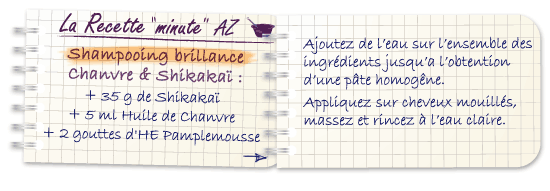 La Recette "minute" AZ
Shampooing brillance
Chanvre & Shikakaï :
+ 35 g de Shikakaï
+ 5 ml Huile de Chanvre
+ 2 gouttes d'HE Pamplemousse
Ajoutez de l'eau sur l'ensemble des
ingrédients jusqu'a l'obtention
d'une pâte homogêne.
Appliquez sur cheveux mouillés,
massez et rincez à l'eau claire.